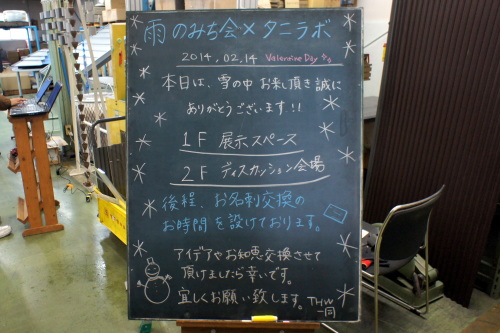 雨のみち会×タニラボ
2014.02.14 Valentine Day
本日は、雪の中お来し頂き誠に
ありがとうございます!!
1F 展示スペース
2F ディスカッション会場
後程、お名刺交換の
お時間を設けております。
アイデアやお知恵交換させて
頂けましたら幸いです。
宜しくお願い致します。THW
一同